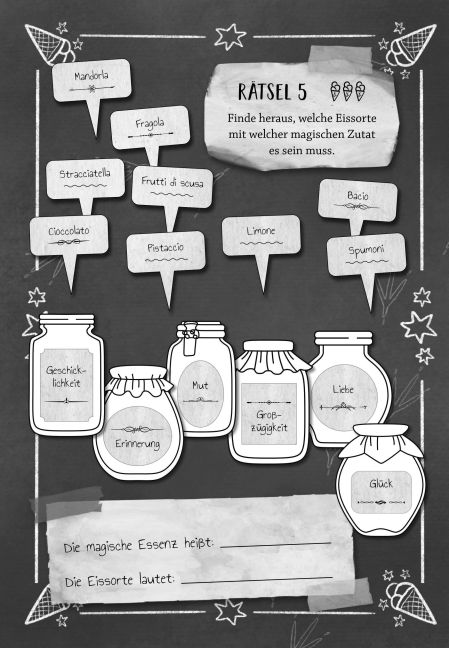 RÄTSEL 5
Finde heraus, welche Eissorte
mit welcher magischen Zutat
es sein muss.
Mandorla
Fragola
Stracciatella
Frutti di scusa
Bacio
Cioccolato
Pistaccio
Limone
Spumoni
Geschick-
lichkeit
Erinnerung
Mut
Groß-
zügigkeit
Liebe
Glück
Die magische Essenz heißt:
Die Eissorte lautet: